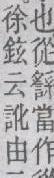 也從當作
徐鉉云訛由